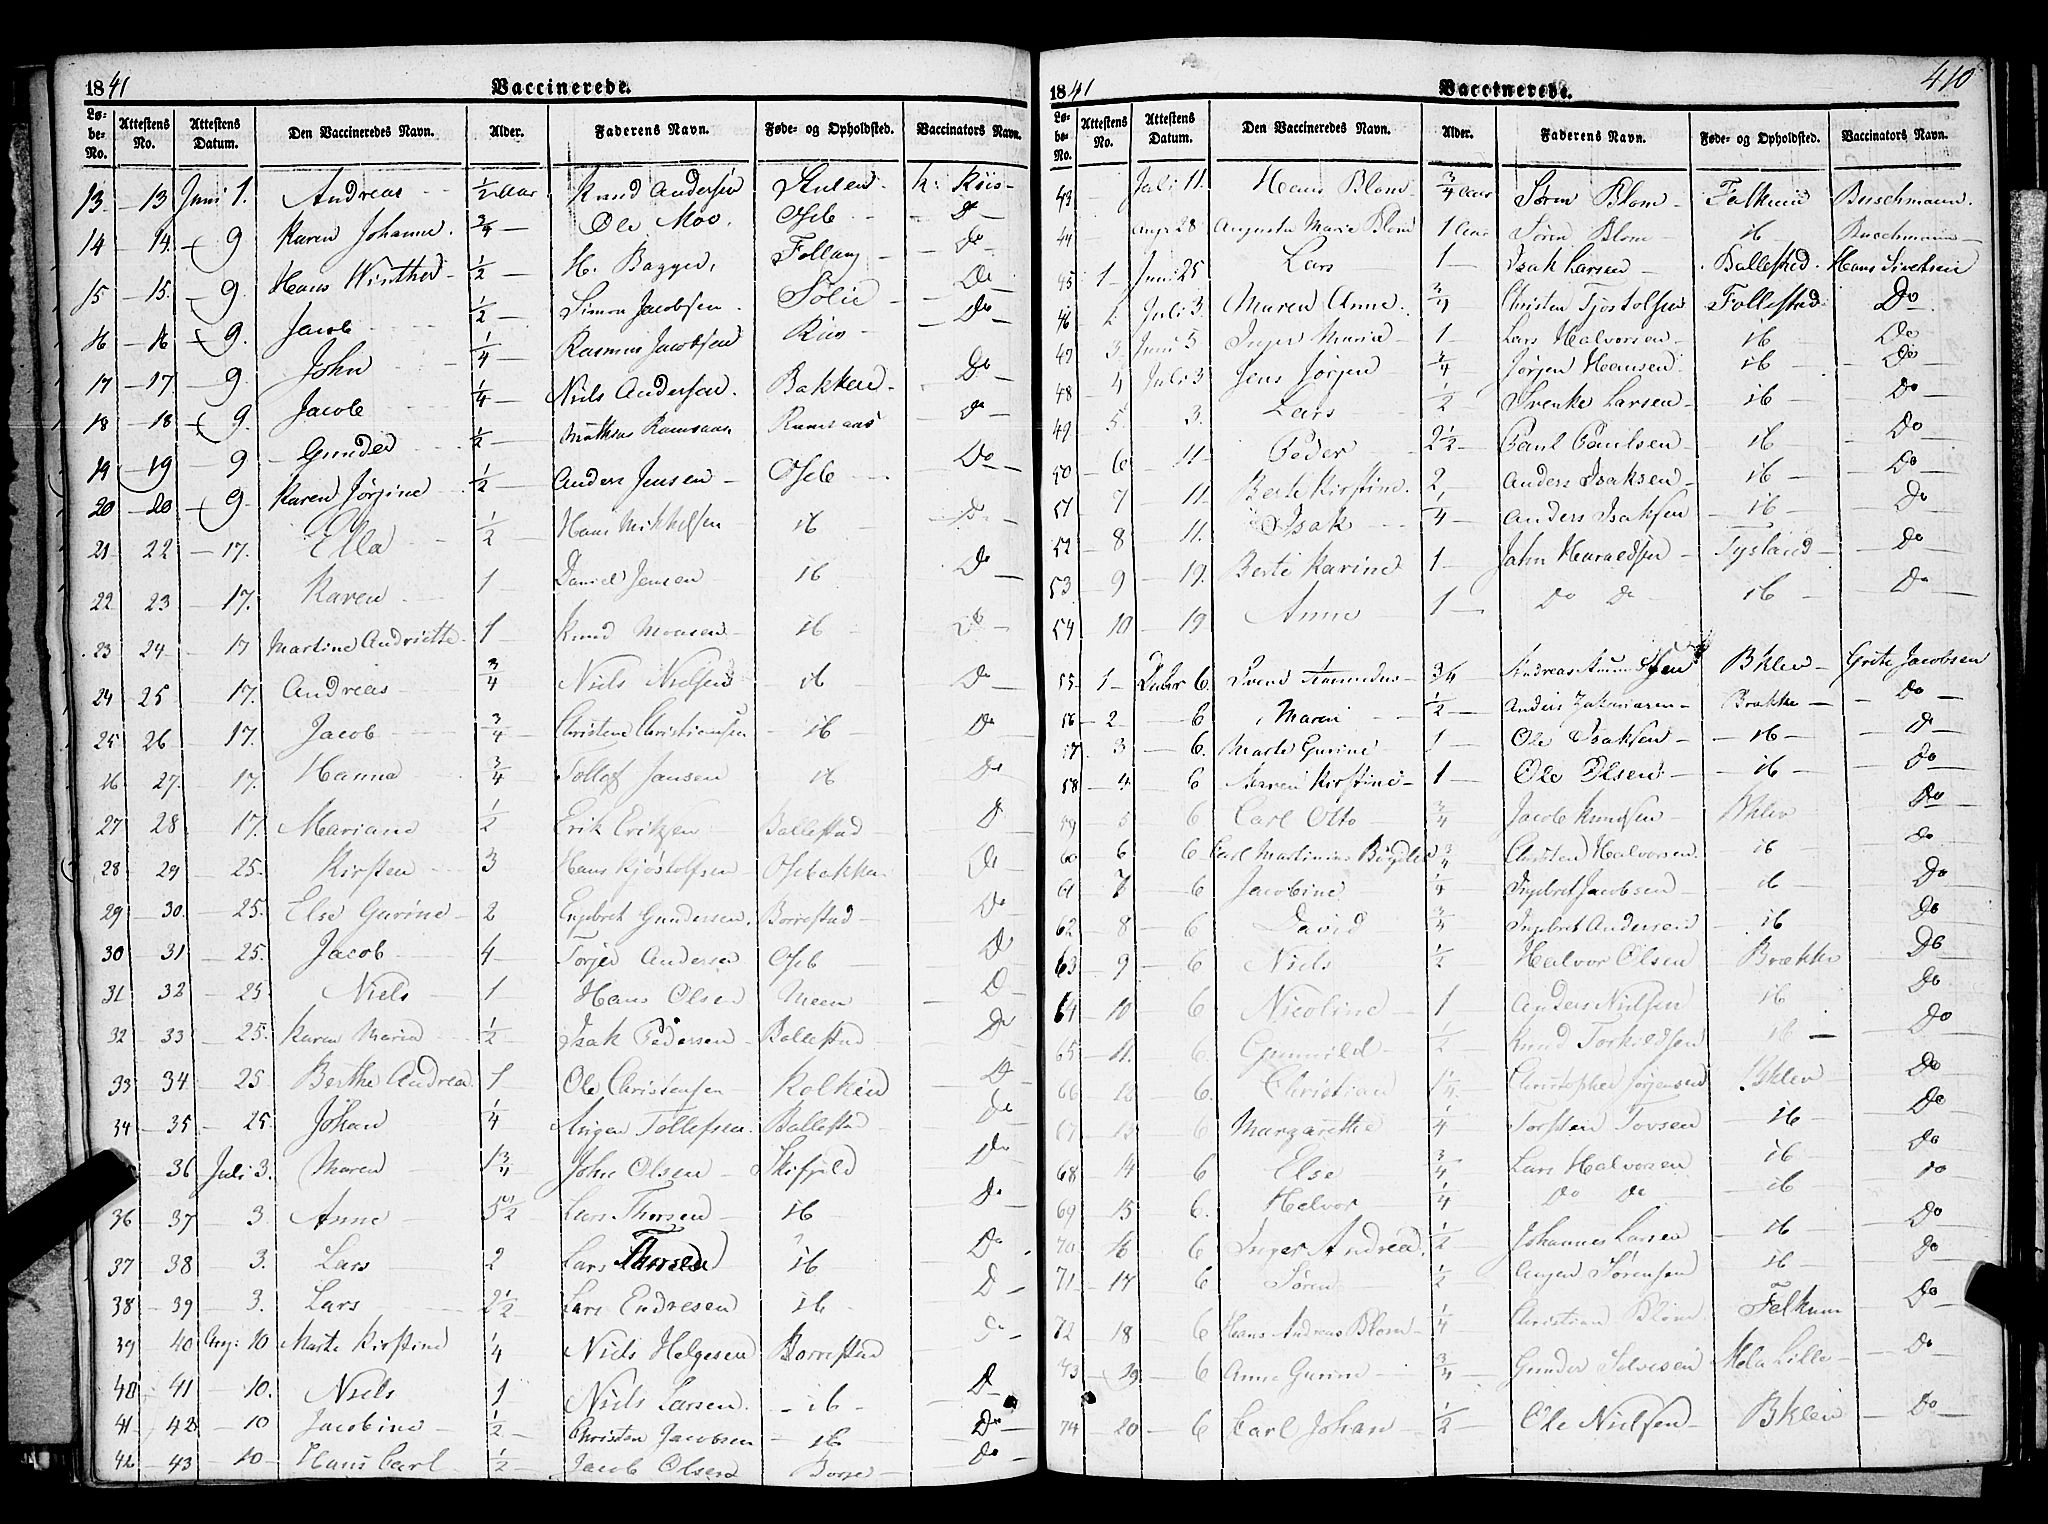 1841 Vaccinerede.
Løbe-No. Attestens No. Attestens Datum. Den Vaccineredes Navn. Alder. Faderens Navn. Føde- og Opholdsted. Vaccinators Navn.
13. 13 Juni 1. Andreas ½ Aar Knud Andersen Stulen K: Riis
14 14. 9 Karen Johanne. ¾ Ole Moe. Oseb Do
15 15. 9. Hans Winther ½ H. Bagger, Follaug Do
16 16 9. Jacob ½ Simon Jacobsen. Sølie Do
17 17. 9 John ¼ Rasmus Jacobsen Riis Do
18 18 9. Jacob ¼ Niels Andersen. Bakken Do
19 19 9 Gunder ½ Mathias Ramsaas Ramsaas Do
20 20 9. Karen Jørgine ½ Anders Jensen Oseb Do
21 22 17. Ella ½ Hans Mikkelsen ib Do
22 23 17. Karen 1 Daniel Jensen ib Do
23 24 17 Martine Andriette 1 Knud Monsen ib Do
24 25 17. Andreas ¾ Niels Nielsen ib Do
25 26 17. Jacob ¾ Christen Christiansen ib Do
26 27. 17. Hanna ¾ Tollef Jansen ib Do
27 28 17. Mariane ½ Erik Eriksen Ballestad Do
28 29 25. Kirsten 3 Hans Kjøstolfsen Osebakken Do
29 30. 25. Else Gurine 2 Engebret Gundersen. Borrestad Do
30 31 25. Jacob 4 Torjer Andersen Oseb Do
31 32 25 Niels 1 Hans Olsen Meen Do
32 33 25. Karen Maria ½ Isak Pedersen Ballestad Do
33 34 25 Berthe Andrea 1 Ole Christensen Kolkin Do
34 35 25. Johan ¼ Tollefsen Ballestad Do
36 Juli 3. Maren 1¾ John Olsen Skifjeld Do
36 37 3. Anne 5½ Lars Thorsen ib Do
37 38 3. Lars 2 Lars Thorsen ib Do
38 39 3. Lars 2½ Lars Endresen ib Do
39 40 Aug: 10 Marte Kirstine ¼ Niels Helgesen Borrestad Do
40 41 10. Niels 1 Niels Larsen. ib Do
41 42 10 Jacobine ½ Christen Jacobsen ib Do
42 43 10 Hans Carl ½ Jacob Olsen Borge Do
1841 Vaccinerede. 410
Løbe-No. Attestens No. Attestens Datum. Den Vaccineredes Navn. Alder. Faderens Navn. Føde- og Opholdsted. Vaccinators Navn.
43 Juli 11. Hans Blom ¾ Aar Søren Blom Falkum Buschmann.
44 Aug: 28 Augusta Marie Blom 1 Aar Søren Blom ib Buschmann
45 1 Juni 25 Lars 1 Isak Larsen Ballestad Hans Sivertsen
46 2 Juli 3. Maren Anne ¾ Christen Tjostolfsen Follestad Do
47 3. Juni 5 Inger Maria 1 Lars Halvorsen ib Do
48 4 Juli 3 Jens Jørgen ¾ Jørgen Hansen ib Do
49 5. 3. Lars ½ Svenke Larsen ib Do
50 6 11 Peder 2½ Paul Paulsen ib Do
51 7 11. Berte Kirstine. 2 Anders Isaksen ib Do
52 8 11. Isak ¼ Anders Isaksen ib Do
53 9 19. Berte Karine 1 John Haraldsen Tysland Do
54 10 19 Anne 1 Do Do ib Do
55 1 Decbr 6. Svend Aamundus 34 Andreas Bklev Grete Jacobsen
56 2 6 Maren ½ Anders Zakariasen Brække Do
57 3 6. Marte Gurine 1 Ole Isaksen ib Do
58 4 6 Maren Kirstine 1 Ole Olsen ib Do
59 5 6 Carl Otto ¾ Jacob Knudsen Bklev Do
60 6 6 Carl Martinius ¾ Christen Halvorsen. ib Do
61 7 6 Jacobine ¼ Ingebret Jacobsen ib Do
62 8 6 David ¾ Ingebret Andersen ib Do
63 9 6 Niels ½ Halvor Olsen Brække Do
64 10 6 Nicoline 1 Anders Nielsen ib Do
65 11. 6. Gunnild ½ Knud Torkildsen ib Do
66 12 6. Christian 1¼ Christopher Jørgensen Bklev Do
67 13 6 Margarethe ¼ Torsten Tovsen ib Do
68 14 6 Else ¾ Lars Halvorsen ib Do
69 15 6. Halvor ¼ Do Do ib Do
70 16 6 Inger Andrea ½ Johannes Larsen ib Do
71 17 6 Søren ½ Sørensen ib Do
72 18 6 Hans Andreas Blom ¼ Christian Blom Falkum Do
73 19 6 Anne Gurine ¾ Gunder Solvesen Mela Lille Do
74 20 6 Carl Johan ½ Ole Nielsen Bklev Do